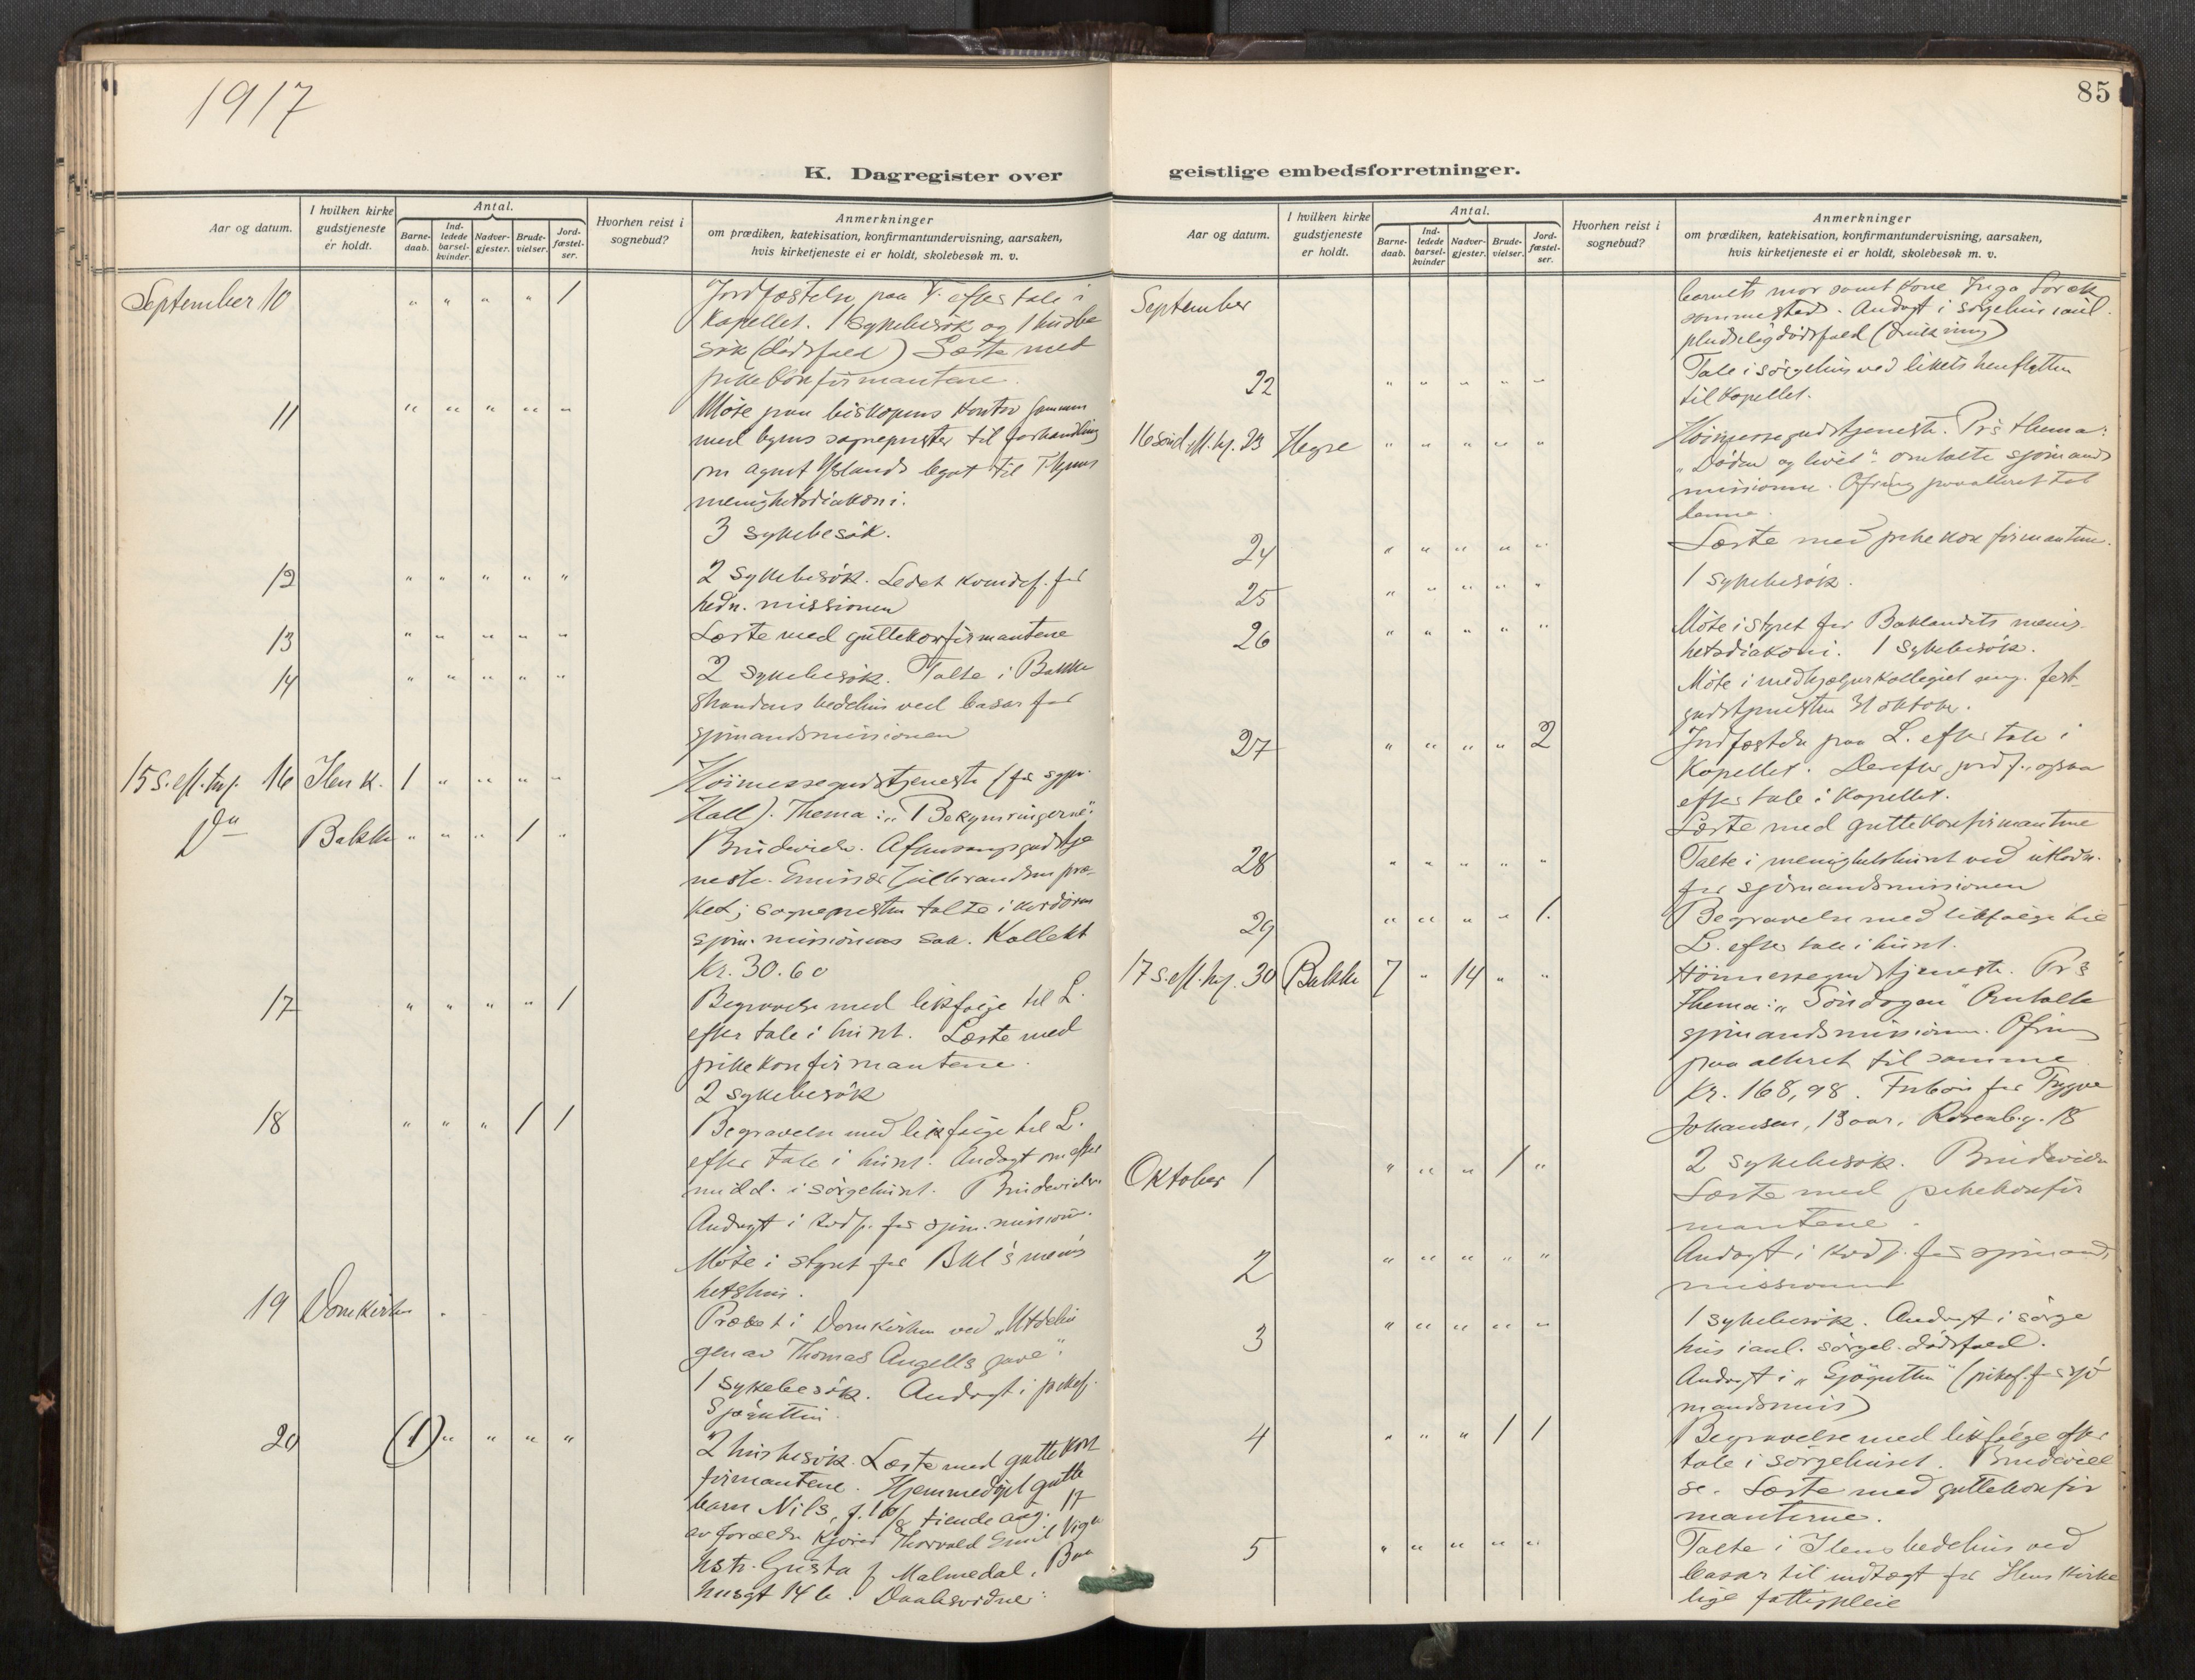 1917
85
K. Dagregister over
geistlige embedsforretninger.
Aar og datum.
I hvilken kirke gudstjeneste er holdt.
Antal.
Barne-daab.
Ind-ledede barsel-kvinder.
Nadver-gjester.
Brude-vielser.
Jord-fæstel-ser.
Hvorhen reist i sognebud?
Anmerkninger
om prædiken, katekisation, konfirmantundervisning, aarsaken,
hvis kirketjeneste ei er holdt, skolebesøk m. v.
September 10 " " " " 1
Jordfæstelse paa T. efter tale i
Kapellet. 1 sykebesök og 1 husbe
sök (dödsfald) Læste med
pikekonfirmantene.
11 " " " " "
Möte paa biskopens kontor sammen
med byens sogneprester til forhandling
om Agnet legat til T.hjems
menighetsdiakoni.
3 sykebesök.
12 " " " " "
2 sykebesök. Ledet kvindef. for
hedn. missionen
13 " " " " "
Læste med guttekonfirmantene
14 " " " " "
2 sykebesök. Talte i Bakke
strandens bedehus ved basar for
sjömandsmissionen
15 s. eft. trf. 16 Ilen k. 1 " " " "
Höimessegudstjeneste (for sgpr.
Hall). Thema: "Bekymringerne".
Do Bakke " " " 1 "
Brudevielse. Aftensangsgudstje
neste. Emissær præ-
ket; sognepresten talte i kordören
sjöm. missionens sak. Kollekt
Kr. 30.60
17 " " " " 1
Begravelse med likfölge til L.
efter tale i huset. Læste med
pikekonfirmantene.
2 sykebesök
18 " " " 1 1
Begravelse med likfölge til L.
efter tale i huset. Andagt om efter
midd. i sörgehuset. Brudevielse.
Andagt i kvdf. for sjöm. mission.
Möte i styret for Bkl's menig
hetshus.
19 Domkirken
Præket i Domkirken ved "Utdelin
gen av Thomas Angells gave".
1 sykebesök. Andagt i pikef.
Sjögutten.
20 (1) " " " "
2 husbesök. Læste med guttekon
firmantene. Hjemmedöpt gutte
barn Nils, f. 10/8 tiende aug. 17
av forældre Kjörer Thorvald Emil Vig
hstr. Gusta f. Malmedal, Bak
husgt 14 b. Daabsvidner:
Aar og datum.
I hvilken kirke gudstjeneste er holdt.
Antal.
Barne-daab.
Ind-ledede barsel-kvinder
Nadver-gjester.
Brude-vielser.
Jord-fæstel-ser.
Hvorhen reist i sognebud?
Anmerkninger
om prædiken, katekisation, konfirmantundervisning, aarsaken,
hvis kirketjeneste ei er holdt, skolebesøk m. v.
September
barnets mor samt Inga
sammesteds. Andagt i sörgehus i anl.
pludselig dödsfald (drukning)
22 " " " " "
Tale i sörgehus ved likets henflytten
til kapellet.
16 sönd. eft. trf. 23 Hegre " " " " "
Höimessegudstjeneste. Pr's thema:
"Döden og livet". Omtalte sjömands
missionen. Ofring paa alteret til
denne.
24 " " " " "
Læste med pikekonfirmantene.
25 " " " " "
1 sykebesök.
26 " " " " "
Möte i styret for Baklandets menig-
hetsdiakoni. 1 sykebesök.
Möte i medhjælperkollegiet ang. fest-
gudstjenesten 31 oktober.
27 " " " " 2
Jordfæstelse paa L. efter tale i
Kapellet. Derefter jordf., ogsaa
efter tale i kapellet.
Læste med guttekonfirmantene
28 " " " " "
Talte i menighetshuset ved utlodn.
for sjömandsmissionen
29 " " " " 1.
Begravelse med likfölge til
L. efter tale i huset.
17 s. eft. trf. 30 Bakke 7 " 14 " "
Höimessegudstjeneste. Pr's
thema: "Söndagen" Omtalte
sjömandsmissionen. Ofring
paa alteret til samme
Kr. 168,98. Forbön for Trygve
Johansen, 13 aar, Rosenb.g. 18
Oktober 1 " " " 1 "
2 sykebesök. Brudevielse
Læste med pikekonfir
mantene.
2 " " " " "
Andagt i kvdf. for sjömands
missionen
3 " " " " "
1 sykebesök. Andagt i sörge
hus i anl. sörgel. dödsfald.
Andagt i "Sjögutten" (pikef. f. sjö
mandsmis)
4 " " " 1 1
Begravelse med likfölge efter
tale i sörgehuset. Brudeviel
se. Læste med guttekonfir
manterne.
5 " " " " "
Talte i Ilens bedehus ved
basar til indtægt for Ilens kirke
lige fattigpleie